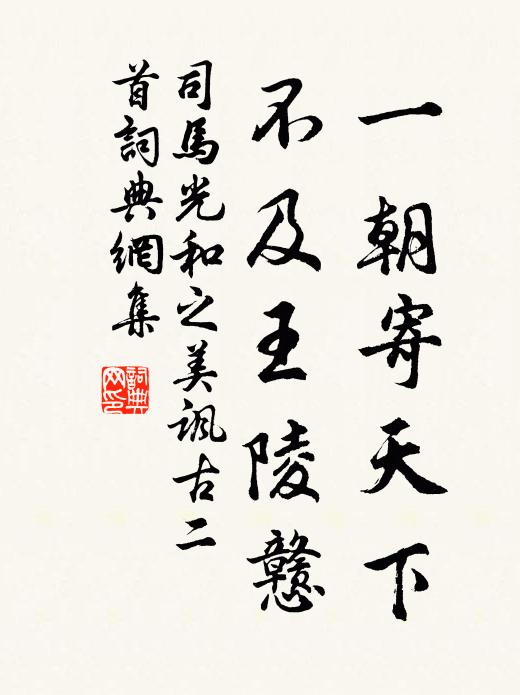 一朝寄天下
不及王陵戇
司馬光和之美諷古二
首詞典網集
詞典
网印